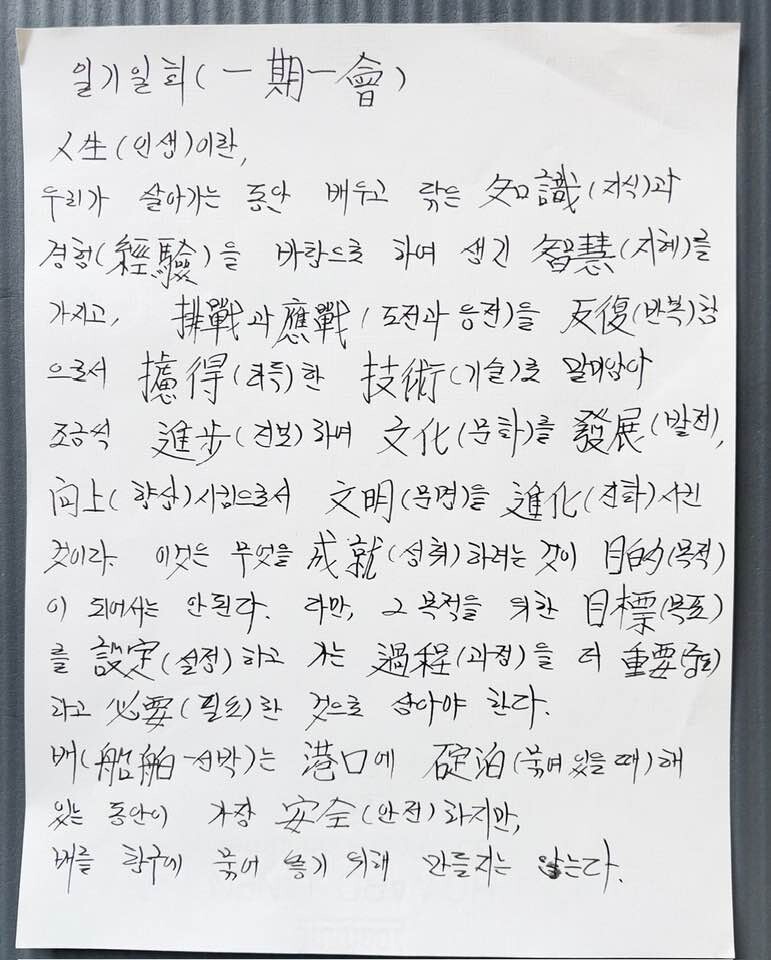 일기일회(一期一會)
人生(인생)이란,
우리가 살아가는 동안 배우고 닦은 知識(지식)과
경험(經驗)을 바탕으로 하여 생긴 智慧(지혜)를
가지고, 挑戰과 應戰(도전과 응전)을 反復(반복)함
으로서 攄得(터득)한 技術(기술)로 말미암아
조금씩 進步(진보)하여 文化(문화)를 發展(발전),
向上(향상)시킴으로서 文明(문명)을 進化(진화)시킨
것이라. 이것은 무엇을 成就(성취)하려는 것이 目的(목적)
이 되어서는 안된다. 다만, 그 목적을 위한 目標(목표)
를 設定(설정)하고 가는 過程(과정)을 더 重要(중요)
라고 必要(필요)한 것으로 삼아야 한다.
배(船舶-선박)는 港口에 碇泊(묶여 있을 때)해
있는 동안이 가장 安全(안전)하지만,
배를 항구에 묶어 두기 위해 만들지는 않는다.